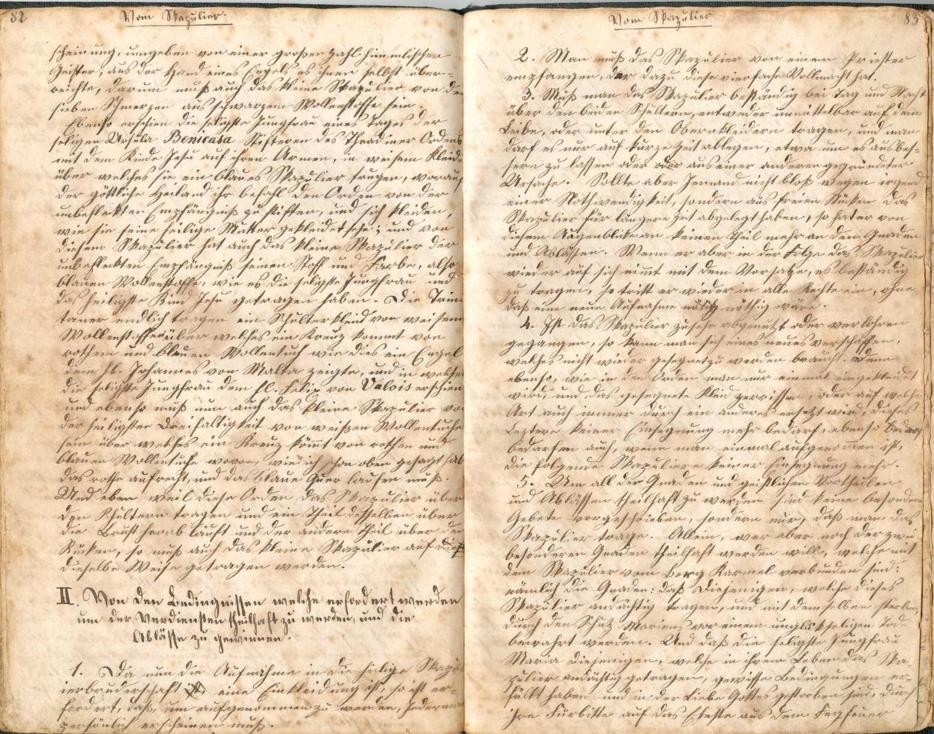 82 Vom Skapulier.
scheinung, umgeben von einer großen Zahl himmlischer
Geister, aus der Hand eines Engels es ihnen selbst über-
reichte, darum muß auch das kleine Skapulier von den
sieben Schmerzen aus schwarzem Wollenstoffe sein.
Ebenso erschien die seligste Jungfrau eines Tages der
seligen Ursula Benicasa Stifterin des Theatiner Ordens
mit dem Kinde Jesu auf ihren Armen, in weisem Kleide
über welches sie ein blaues Skapulier trugen, worauf
der göttliche Heiland ihr befohl den Orden von der
unbeflekten Empfängniß zu stiften, und sich kleiden,
wie sie seine heilige Mutter gekleidet sehe; und von
diesem Skapulier hat auch das kleine Skapulier der
unbeflekten Empfängniß seinen Stoff und Farbe, also
blauen Wollenstoffe, wie es die seligste Jungfrau und
das heiligste Kind Jesu getragen haben. Die Trini
taner endlich tragen ein Schulterkleid von weisem
Wollenstoffe über welches ein Kreuz kommt von
rothem und blauen Wollentuch wie dies ein Engel
dem hl. Johannes von Matha zeigte, und in welchem
die seligste Jungfrau dem hl. Felix von Valois erschien
und ebenso muß nun auch das kleine Skapulier von
der heiligsten Dreifaltigkeit von weißen Wollentuche
sein über welches ein Kreuz kömt von rothen und
blauen Wollentuche wovon, wie ich schon oben gesagt hab
das rothe aufrecht, und das blaue quer laufen muß.
Und eben weil diese Orden das Skapulier über
den Schultern tragen und ein Theil desselben über
die Brust herab lauft und der andere Theil über den
Rücken, so muß auch das kleine Skapulier auf
dieselbe Weise getragen werden.
II. Von den Bedingnissen welche erfordert werden
um der Verdiensten theilhaft zu werden, und die
Ablässe zu gewinnen.
1. Da nun die Aufnahme in die heilige Skapu
lierbruderschaft eine Einkleidung ist, so ist er-
fordert, daß, um aufgenommen zu werden, jederman
persönlich erscheinen muß.
Vom Skapulier 83
2. Man muß das Skapulier von einem Priester
empfangen, der dazu diese vierfache Vollmacht hat.
3. Muß man das Skapulier beständig bei Tag und Nacht
über den beiden Schultern, entweder unmittelbar auf dem
Leibe, oder unter den Oberkleidern tragen, und man
darf es nur auf kurze Zeit ablegen, etwa um es ausbes-
sern zu lassen oder aus einer anderen gegründeten
Ursache. Sollte aber Jemand nicht bloß wegen irgend
einer Nothwendigkeit, sondern aus freien Stücken das
Skapulier für längere Zeit abgelegt haben, so hat er von
diesem Augenblicke an keinen Theil mehr an den Gnaden
und Ablässen. Wenn er aber in der Folge das Skapulier
wieder auf sich nimt mit dem Vorsatze, es beständig
zu tragen, so tritt er wieder in alle Rechte ein, ohne
daß eine neue Aufnahme nöthig wäre.
4. Ist das Skapulier zufäh abgenutzt oder verlohren
gegangen, so kann man sich eines neues verschaffen,
welches nicht wieder gesegnet zu werden braucht. Denn
ebenso, wie in den Orden man nur einmal eingekleidet
wird, und das gesegnete Kleid zerrissen, oder auf welche
Art auch immer durch ein anderes ersetzt wird, dieses
Leztere keiner Einsegnung mehr bedarf, ebenso
bedarfen auch, wenn man einmal aufgenommen ist,
die folgende Skapulier keiner Einsegnung mehr.
5. Um all der Gnaden und geistlichen Vortheilen
und Ablässen theilhaft zu werden sind keine besondern
Gebete vorgeschrieben, sondern nur, daß man das
Skapulier trage. Allein, wer aber noch der zwei
besonderen Gnaden theilhaft werden will, welche mit
dem Skapulier vom Berg Karmel verbunden sind:
nämlich die Gnaden: daß Diejenigen, welche dieses
Skapulier andächtig tragen, und mit demselben sterben,
durch den Schutz Mariens vor einem unglückseligen Tod
bewahrt werden. Und daß die seligste Jungfrau
Maria diejenigen, welche in ihren Leben das Ska
pulier andächtig getragen, gewiße Bedingungen er-
füllt haben und in der Liebe Gottes gestorben sind, durch
ihre Fürbitte auf das Eheste aus dem Fegfeuer